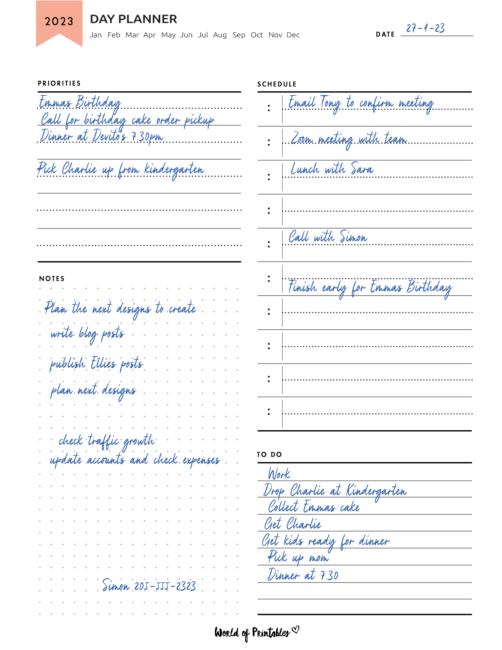 2023
DAY PLANNER
Jan Feb Mar Apr May Jun Jul Aug Sep Oct Nov Dec
DATE 27-9-23
PRIORITIES
Emmas Birthday
Call for birthday cake order pickup
Dinner at Devitos 7.30pm
Pick Charlie up from kindergarten
NOTES
Plan the next designs to create
write blog posts
publish Ellies posts
plan next designs
check traffic growth
update accounts and check expenses
Simon 205-555-2323
SCHEDULE
: Email Tony to confirm meeting
: Zoom meeting with team
: Lunch with Sara
:
: Call with Simon
: Finish early for Emmas Birthday
:
:
:
:
TO DO
Work
Drop Charlie at Kindergarten
Collect Emmas cake
Get Charlie
Get kids ready for dinner
Pick up mom
Dinner at 7.30
World of Printables